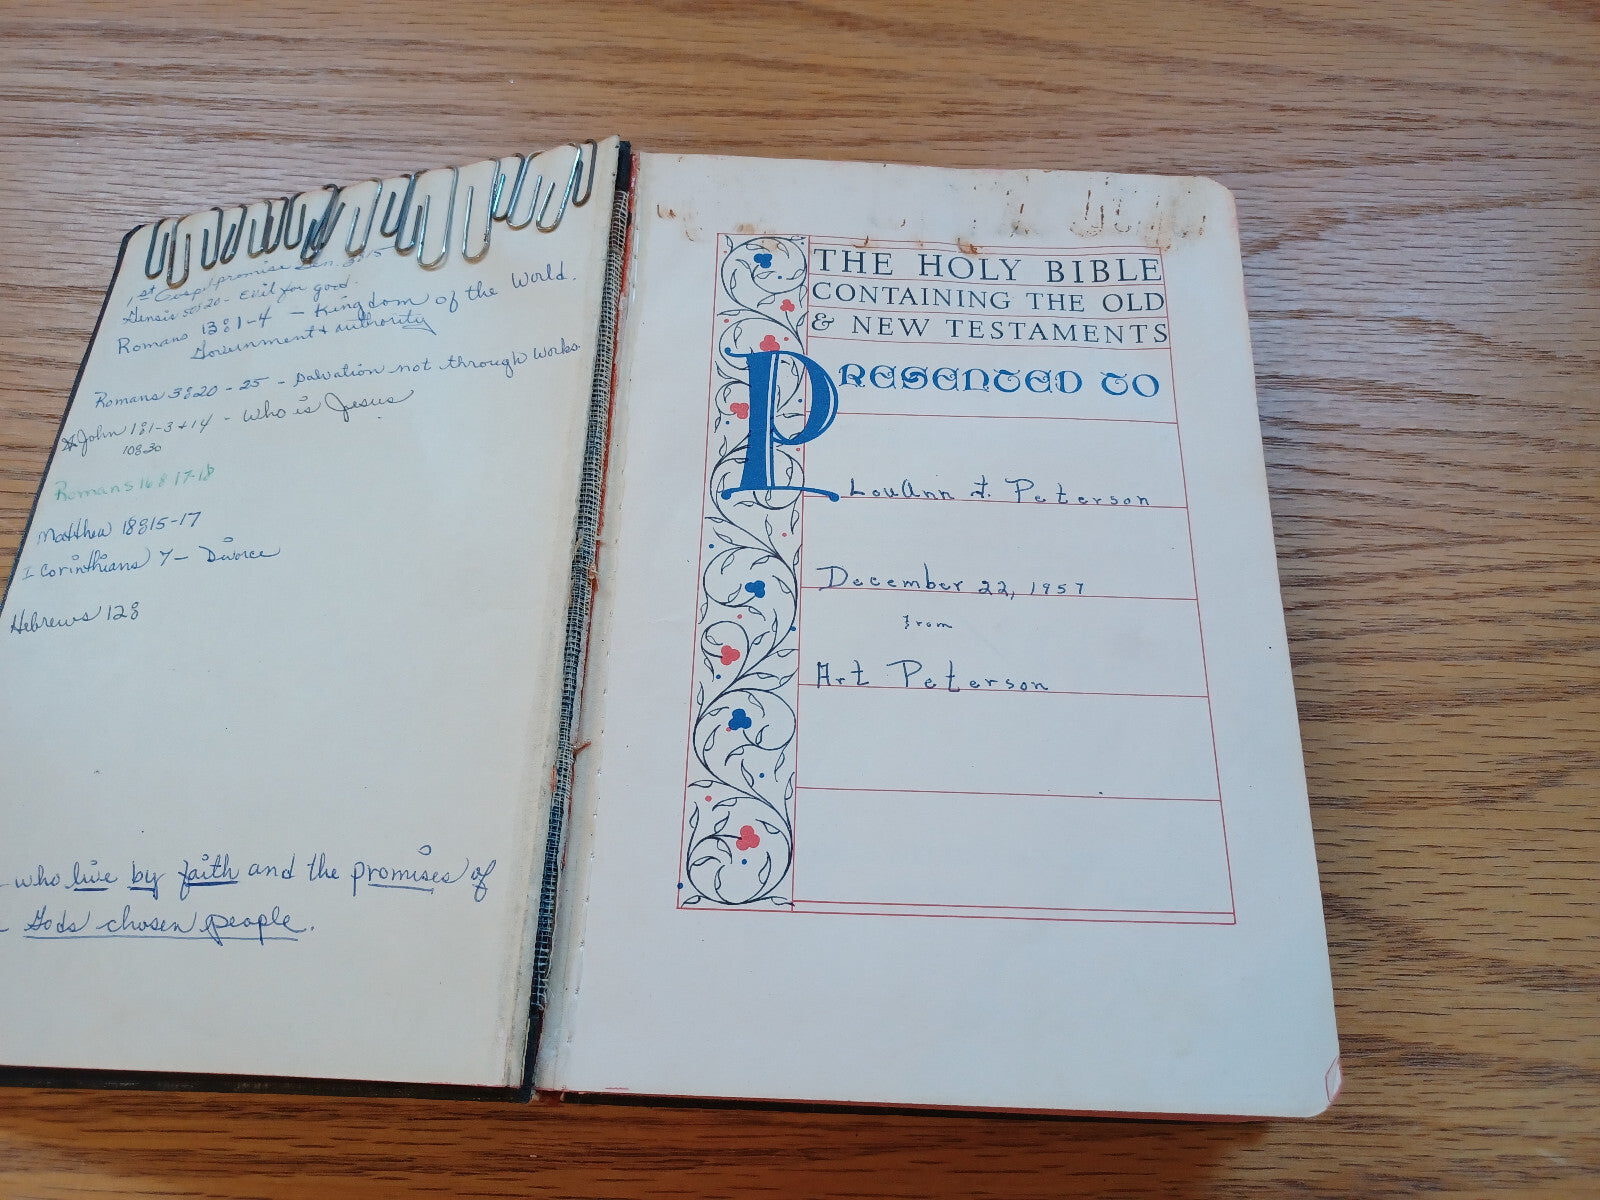 1st Gospel promise Gen. 3:15
Gensis 50:20 - Evil for good.
Romans 13:1-4 - Kingdom of the World.
Government & authority
Romans 3:20-25 - Salvation not through works.
John 1:1-3 + 14 - Who is Jesus
10:30
Romans 16:17-18
Matthew 18:15-17
I Corinthians 7 - Divorce
Hebrews 12:8
who live by faith and the promises of
Gods chosen people.
THE HOLY BIBLE
CONTAINING THE OLD
& NEW TESTAMENTS
PRESENTED TO
LouAnn J. Peterson
December 22, 1957
from
Art Peterson